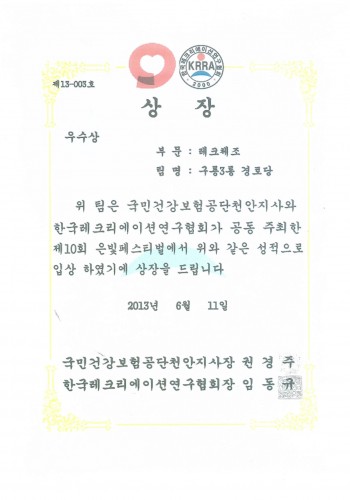 한국레크리에이션연구협회
KRRA
2000
제13-003호
상 장
우수상
부 문 : 레크체조
팀 명 : 구룡3통 경로당
위 팀은 국민건강보험공단천안지사와
한국레크리에이션연구협회가 공동 주최한
제10회 은빛페스티벌에서 위와 같은 성적으로
입상 하였기에 상장을 드립니다
2013년 6월 11일
국민건강보험공단천안지사장 권 경 주
한국레크리에이션연구협회장 임 동 규